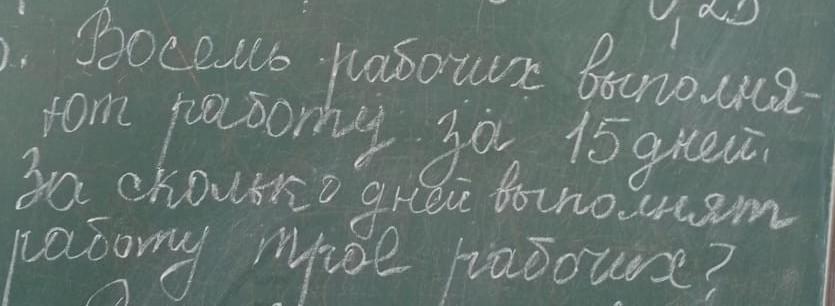 0,25
Восемь рабочих выполня-
ют работу за 15 дней.
За сколько дней выполнят
работу трое рабочих?